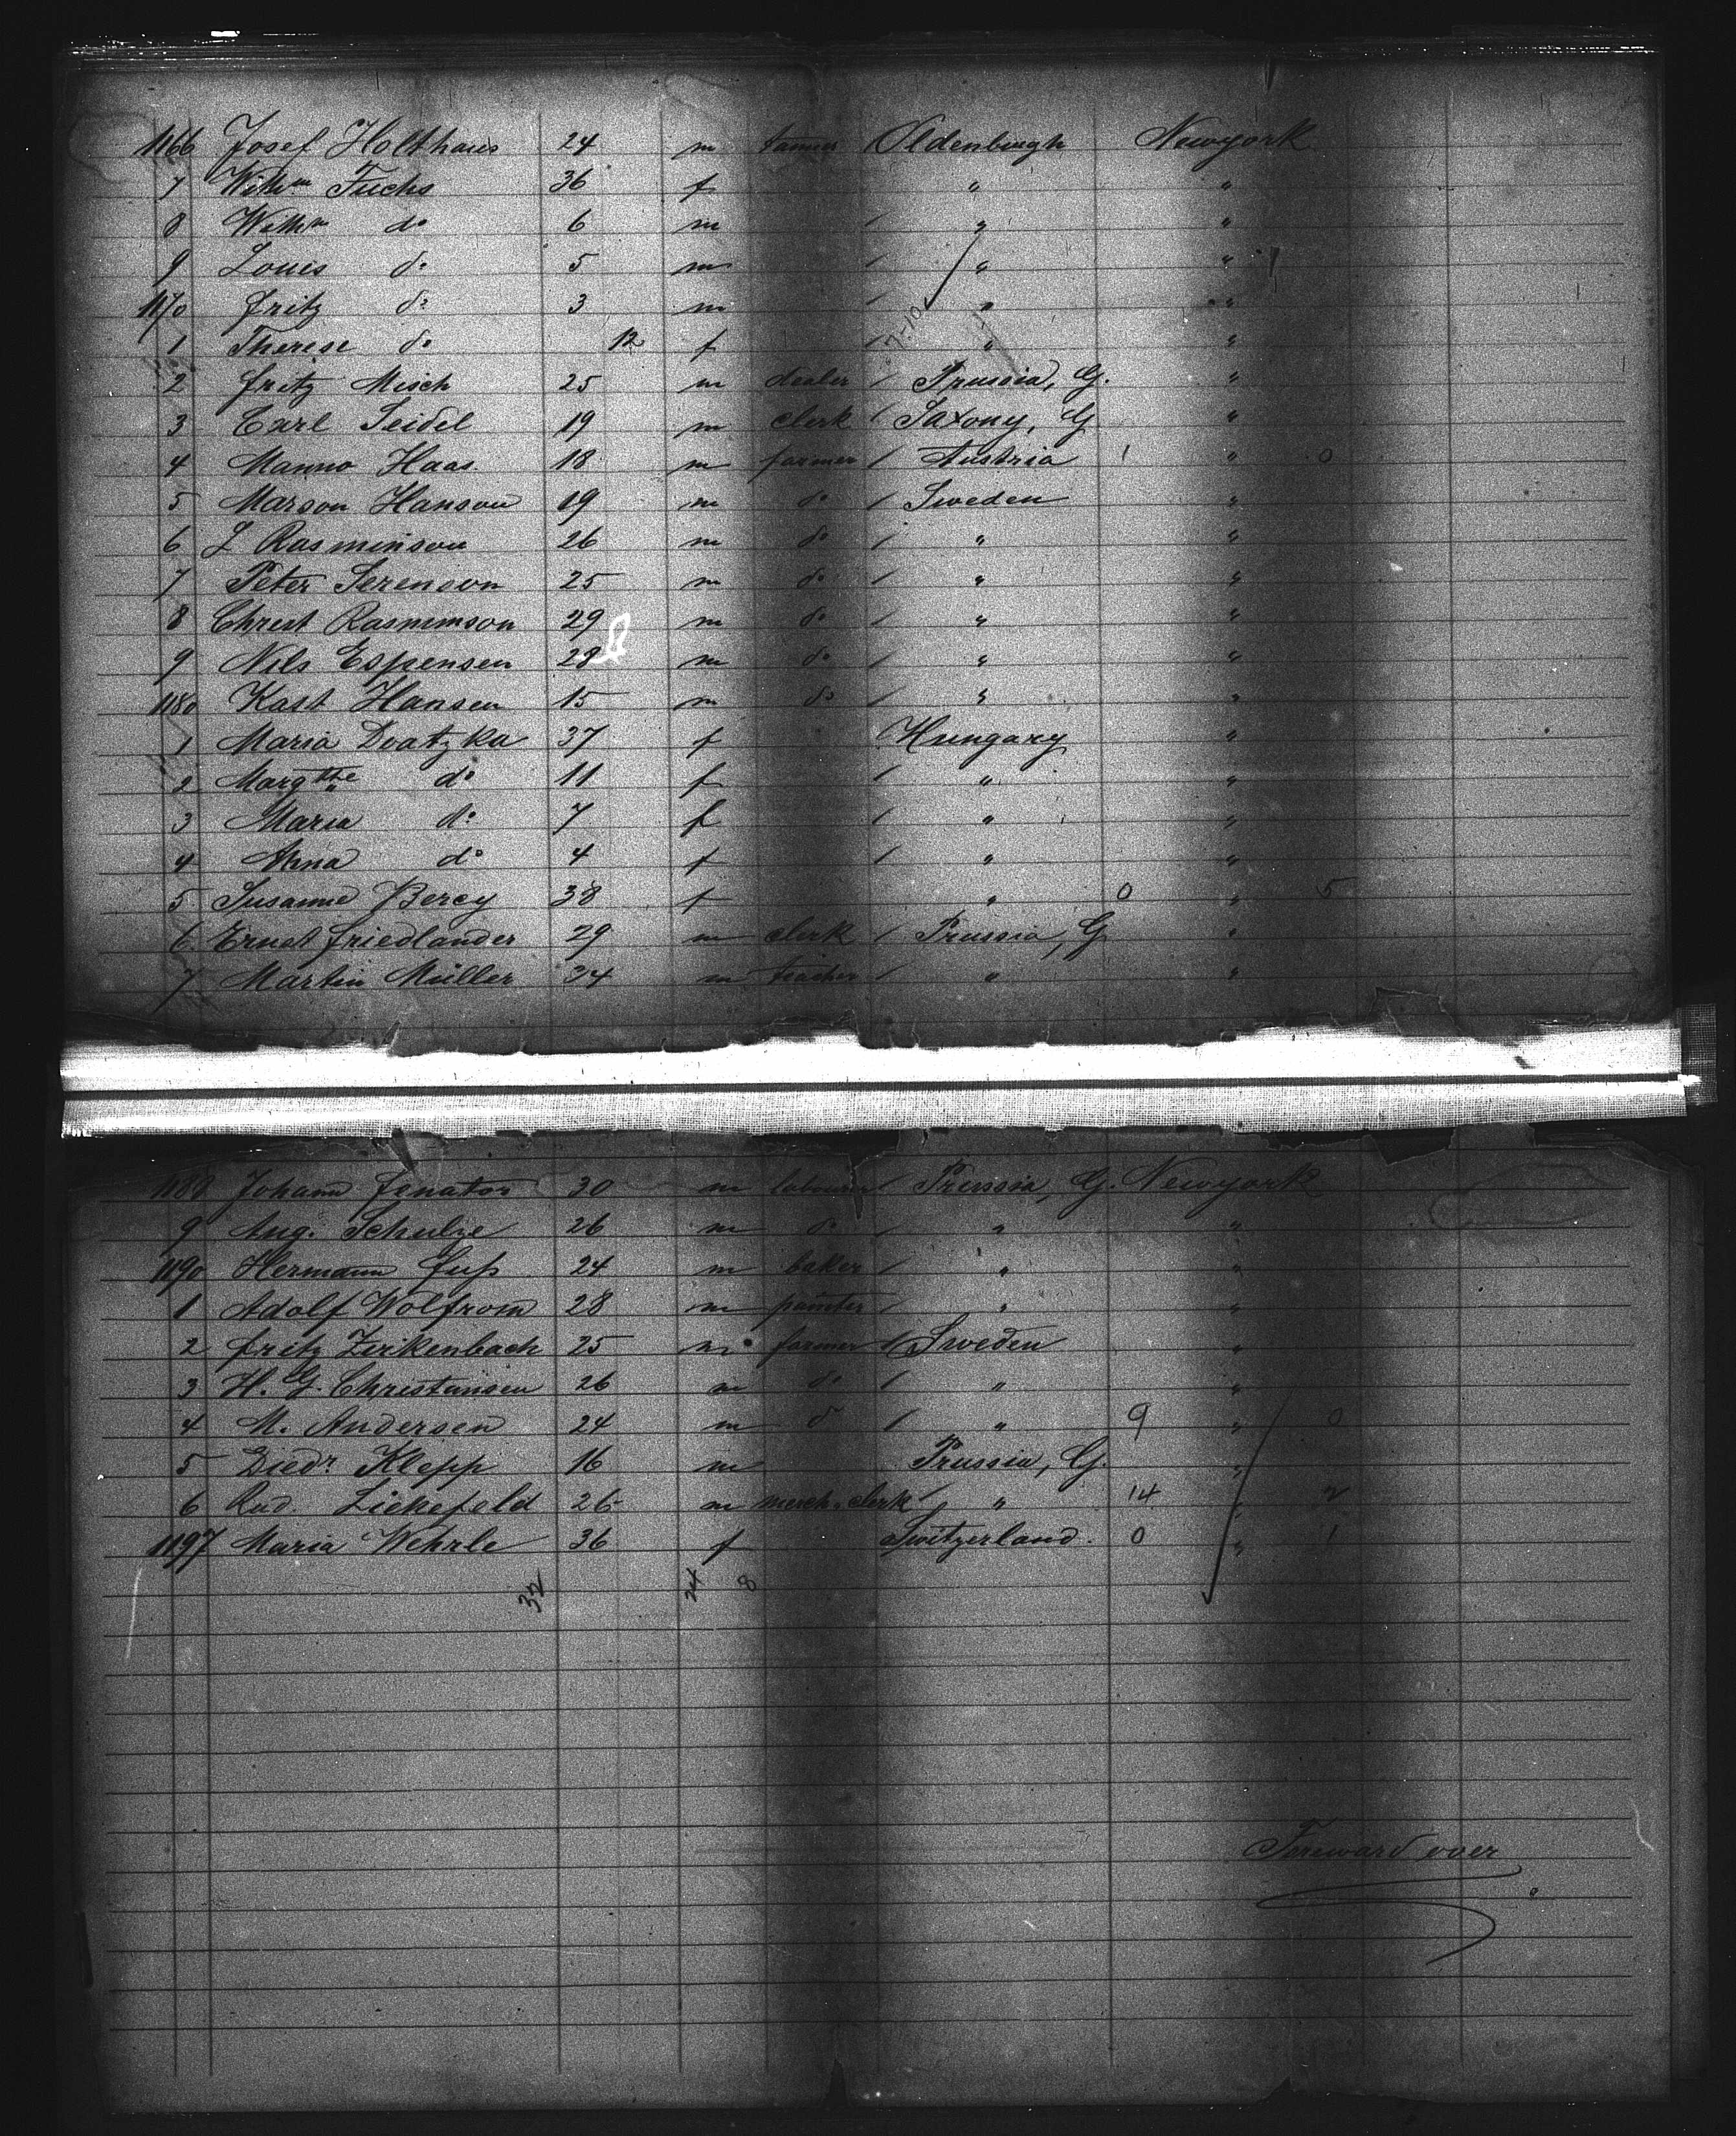 1166 Josef Holthaus 24 m tanner Oldenburgh Newyork
7 Wilhm Fuchs 36 f " "
8 Wilhm do 6 m / " "
9 Louis do 5 m / " "
1170 Fritz do 3 m / " "
1 Therese do 12 f / " "
2 Fritz Misch 25 m dealer / Prussia, G. "
3 Carl Seidel 19 m clerk / Saxony, G "
4 Manno Haas 18 m farmer / Austria 1 " 0
5 Marson Hanson 19 m do / Sweden "
6 L Rasminson 26 m do / " "
7 Peter Serenson 25 m do / " "
8 Christ Rasmimson 29 m do / " "
9 Nils Espensen 28 m do / " "
1180 Kast Hansen 15 m do / " "
1 Maria Dvatzka 37 f Hungary "
2 Margthe do 11 f / " "
3 Maria do 7 f / " "
4 Anna do 4 f / " "
5 Susanne Bercy 38 f " 0 " 5
6 Ernst Friedlander 29 m clerk / Prussia, G "
7 Martin Müller 34 m teacher / " "
1188 Johann Senator 30 m labourer / Prussia, G. Newyork
9 Aug. Schulze 26 m do / " "
1190 Hermann Fuß 24 m baker / " "
1 Adolf Wolfrom 28 m painter / " "
2 Fritz Zirkenbach 25 m farmer / Sweden "
3 H. G. Christansen 26 m do / " "
4 M. Andersen 24 m do / " 9 " 0
5 Diedr Klepp 16 m Prussia, G. "
6 Rud. Liekefeld 26 m merch. clerk / " 14 " 2
1197 Maria Wehrle 36 f Switzerland. 0 " 1
32 24 8
Foreward over